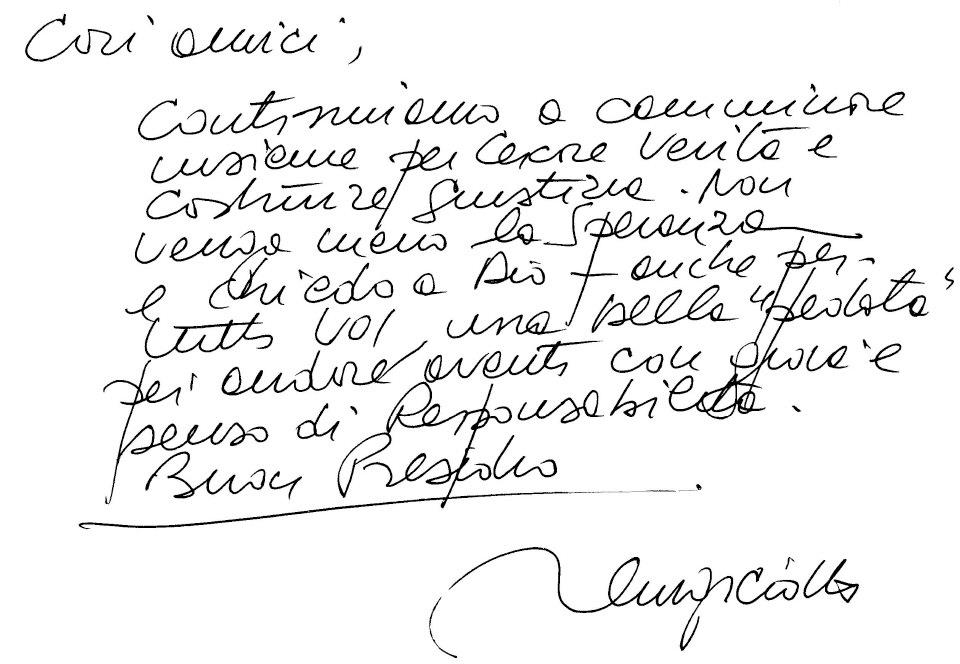 Cari amici,
Continuiamo a camminare
insieme per cercare verità e
costruire giustizia. Non
venga meno la speranza
e chiedo a Dio - anche per
tutti voi, una bella "pedata"
per andare avanti con gioia e
senso di Responsabilità.
Buon Presidio
Luigi Ciotti